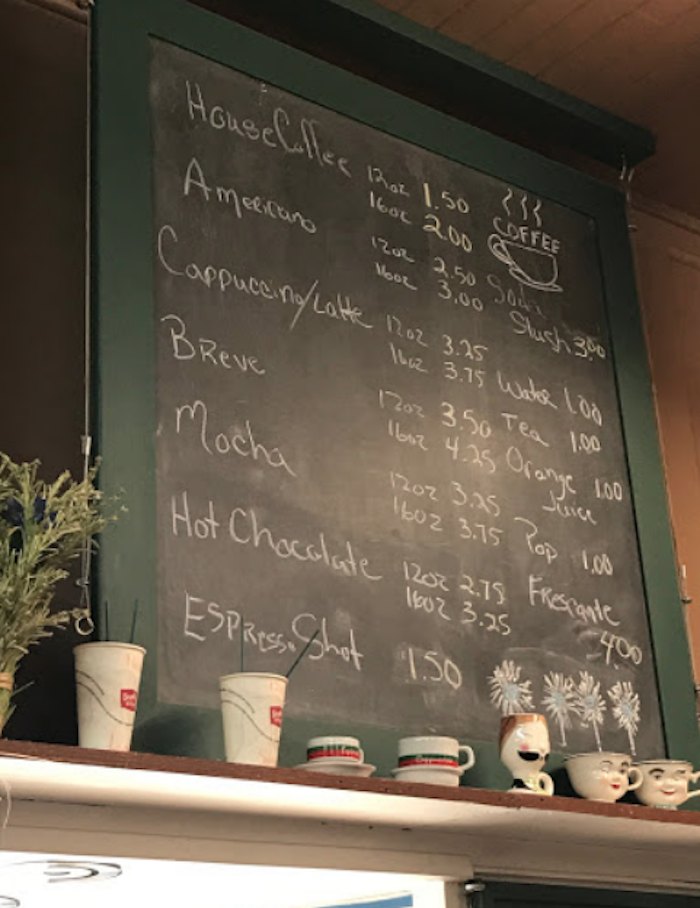 House Coffee 12oz 1.50
16oz 2.00
Americano 12oz 2.50
16oz 3.00
Cappuccino/Latte 12oz 3.25
16oz 3.75
Breve 12oz 3.50
16oz 4.25
Mocha 12oz 3.25
16oz 3.75
Hot Chocolate 12oz 2.75
16oz 3.25
Espresso Shot 1.50
COFFEE
Soda
Slush 3.00
Water 1.00
Tea 1.00
Orange 1.00
Juice
Pop 1.00
4.00